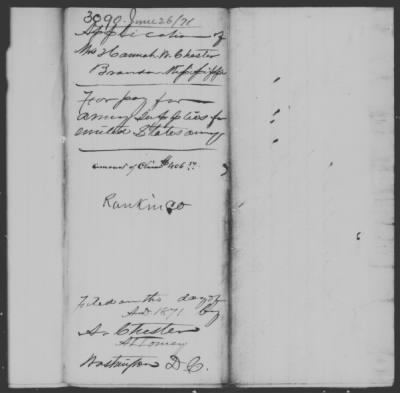 3090 June 26/71
Application of
Mrs Hannah W. Chester
Brandon Mississippi
For pay for
army supplies for
united States army
amount of Claim $406
Rankin co
Filed on the day of
A.D. 1871 by
A. Chester
Attorney
Washington D.C.